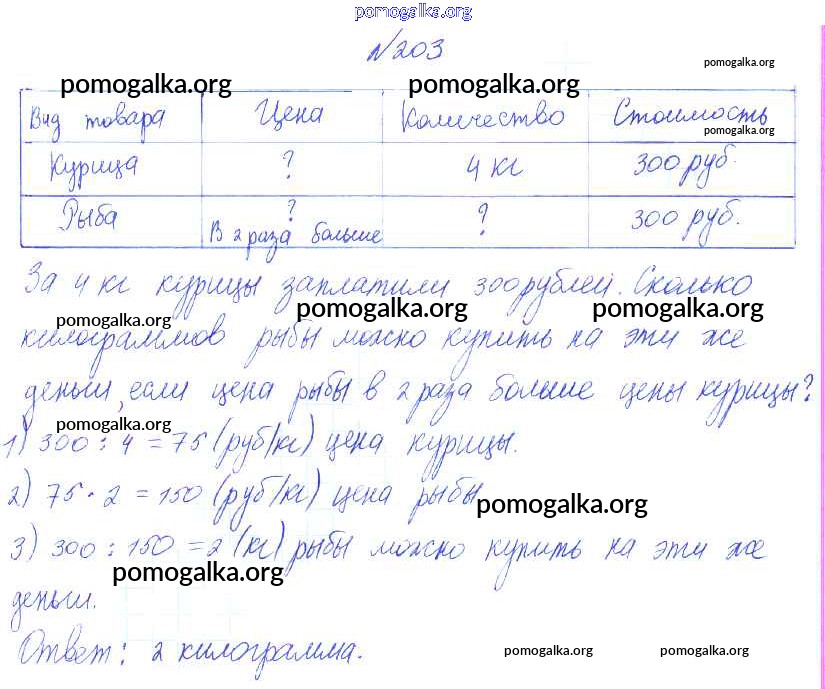 pomogalka.org
№203
pomogalka.org pomogalka.org pomogalka.org
Вид товара Цена Количество Стоимость
pomogalka.org
Курица ? 4 кг 300 руб.
Рыба ? В 2 раза больше ? 300 руб.
За 4 кг курицы заплатили 300 рублей. Сколько
pomogalka.org pomogalka.org pomogalka.org
килограммов рыбы можно купить на эти же
деньги, если цена рыбы в 2 раза больше цены курицы?
pomogalka.org
1) 300 : 4 = 75 (руб/кг) цена курицы.
2) 75 · 2 = 150 (руб/кг) цена рыбы
pomogalka.org
3) 300 : 150 = 2 (кг) рыбы можно купить на эти же
pomogalka.org
деньги.
Ответ: 2 килограмма.
pomogalka.org pomogalka.org